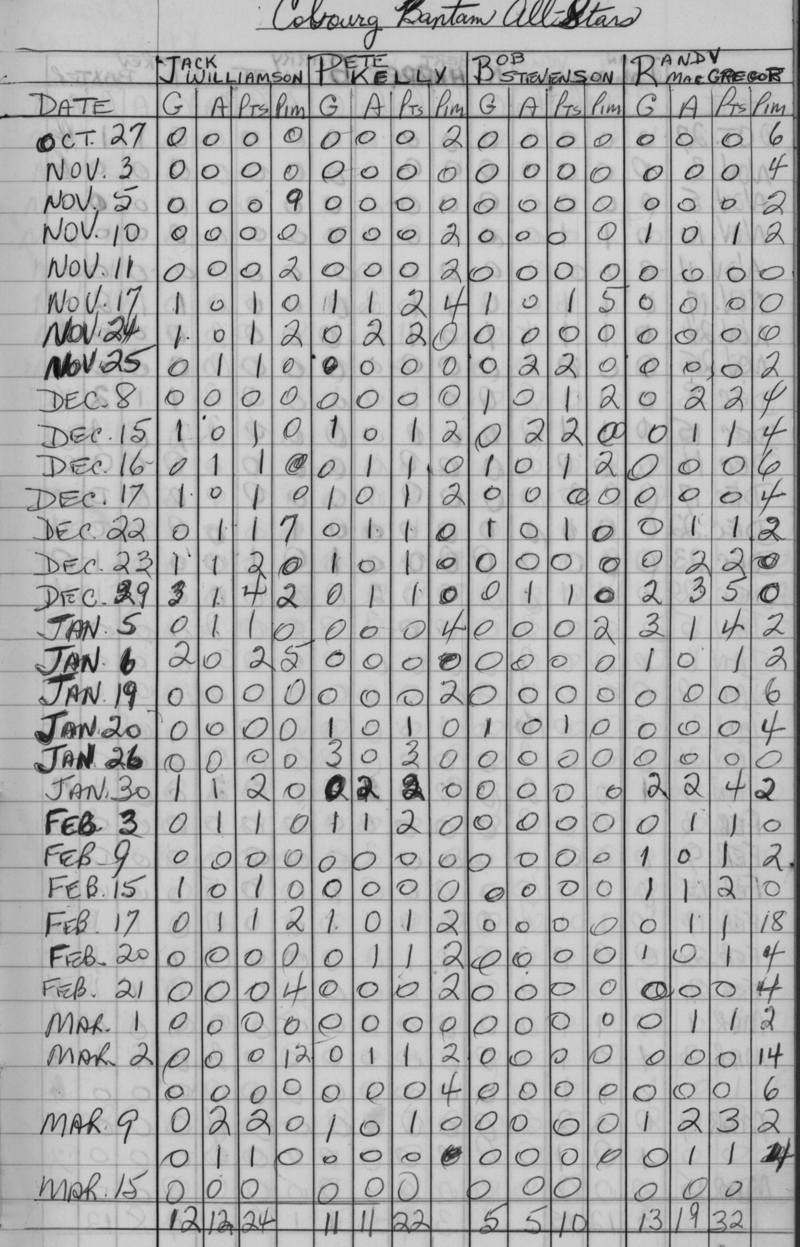 Cobourg Bantam All Stars
JACK WILLIAMSON PETE KELLY BOB STEVENSON RANDY MACGREGOR
DATE G A Pts Pim G A Pts Pim G A Pts Pim G A Pts Pim
OCT. 27 0 0 0 0 0 0 0 2 0 0 0 0 0 0 0 6
NOV. 3 0 0 0 0 0 0 0 0 0 0 0 0 0 0 0 4
NOV. 5 0 0 0 9 0 0 0 0 0 0 0 0 0 0 0 2
NOV. 10 0 0 0 0 0 0 0 2 0 0 0 0 1 0 1 2
NOV. 11 0 0 0 2 0 0 0 2 0 0 0 0 0 0 0 0
NOV. 17 1 0 1 0 1 1 2 4 1 0 1 5 0 0 0 0
NOV. 24 1 0 1 2 0 2 2 0 0 0 0 0 0 0 0 0
NOV. 25 0 1 1 0 0 0 0 0 0 2 2 0 0 0 0 2
DEC. 8 0 0 0 0 0 0 0 0 1 0 1 2 0 2 2 4
DEC. 15 1 0 1 0 1 0 1 2 0 2 2 0 0 1 1 4
DEC. 16 0 1 1 0 0 1 1 0 1 0 1 2 0 0 0 6
DEC. 17 1 0 1 0 1 0 1 2 0 0 0 0 0 0 0 4
DEC. 22 0 1 1 7 0 1 1 0 1 0 1 0 0 1 1 2
DEC. 23 1 1 2 0 1 0 1 0 0 0 0 0 0 2 2 0
DEC. 29 3 1 4 2 0 1 1 0 0 1 1 0 2 3 5 0
JAN. 5 0 1 1 0 0 0 0 4 0 0 0 2 3 1 4 2
JAN. 6 2 0 2 5 0 0 0 0 0 0 0 0 1 0 1 2
JAN. 19 0 0 0 0 0 0 0 2 0 0 0 0 0 0 0 6
JAN. 20 0 0 0 0 1 0 1 0 1 0 1 0 0 0 0 4
JAN. 26 0 0 0 0 3 0 3 0 0 0 0 0 0 0 0 0
JAN. 30 1 1 2 0 0 2 2 0 0 0 0 0 2 2 4 2
FEB. 3 0 1 1 0 1 1 2 0 0 0 0 0 0 1 1 0
FEB. 9 0 0 0 0 0 0 0 0 0 0 0 0 1 0 1 2
FEB. 15 1 0 1 0 0 0 0 0 0 0 0 0 1 1 2 0
FEB. 17 0 1 1 2 1 0 1 2 0 0 0 0 0 1 1 18
FEB. 20 0 0 0 0 0 1 1 2 0 0 0 0 1 0 1 4
FEB. 21 0 0 0 4 0 0 0 2 0 0 0 0 0 0 0 4
MAR. 1 0 0 0 0 0 0 0 0 0 0 0 0 0 1 1 2
MAR. 2 0 0 0 12 0 1 1 2 0 0 0 0 0 0 0 14
0 0 0 0 0 0 0 4 0 0 0 0 0 0 0 6
MAR. 9 0 2 2 0 1 0 1 0 0 0 0 0 1 2 3 2
0 1 1 0 0 0 0 0 0 0 0 0 0 1 1 4
MAR. 15 0 0 0 0 0 0 0 0 0 0 0 0
12 12 24 11 11 22 5 5 10 13 19 32